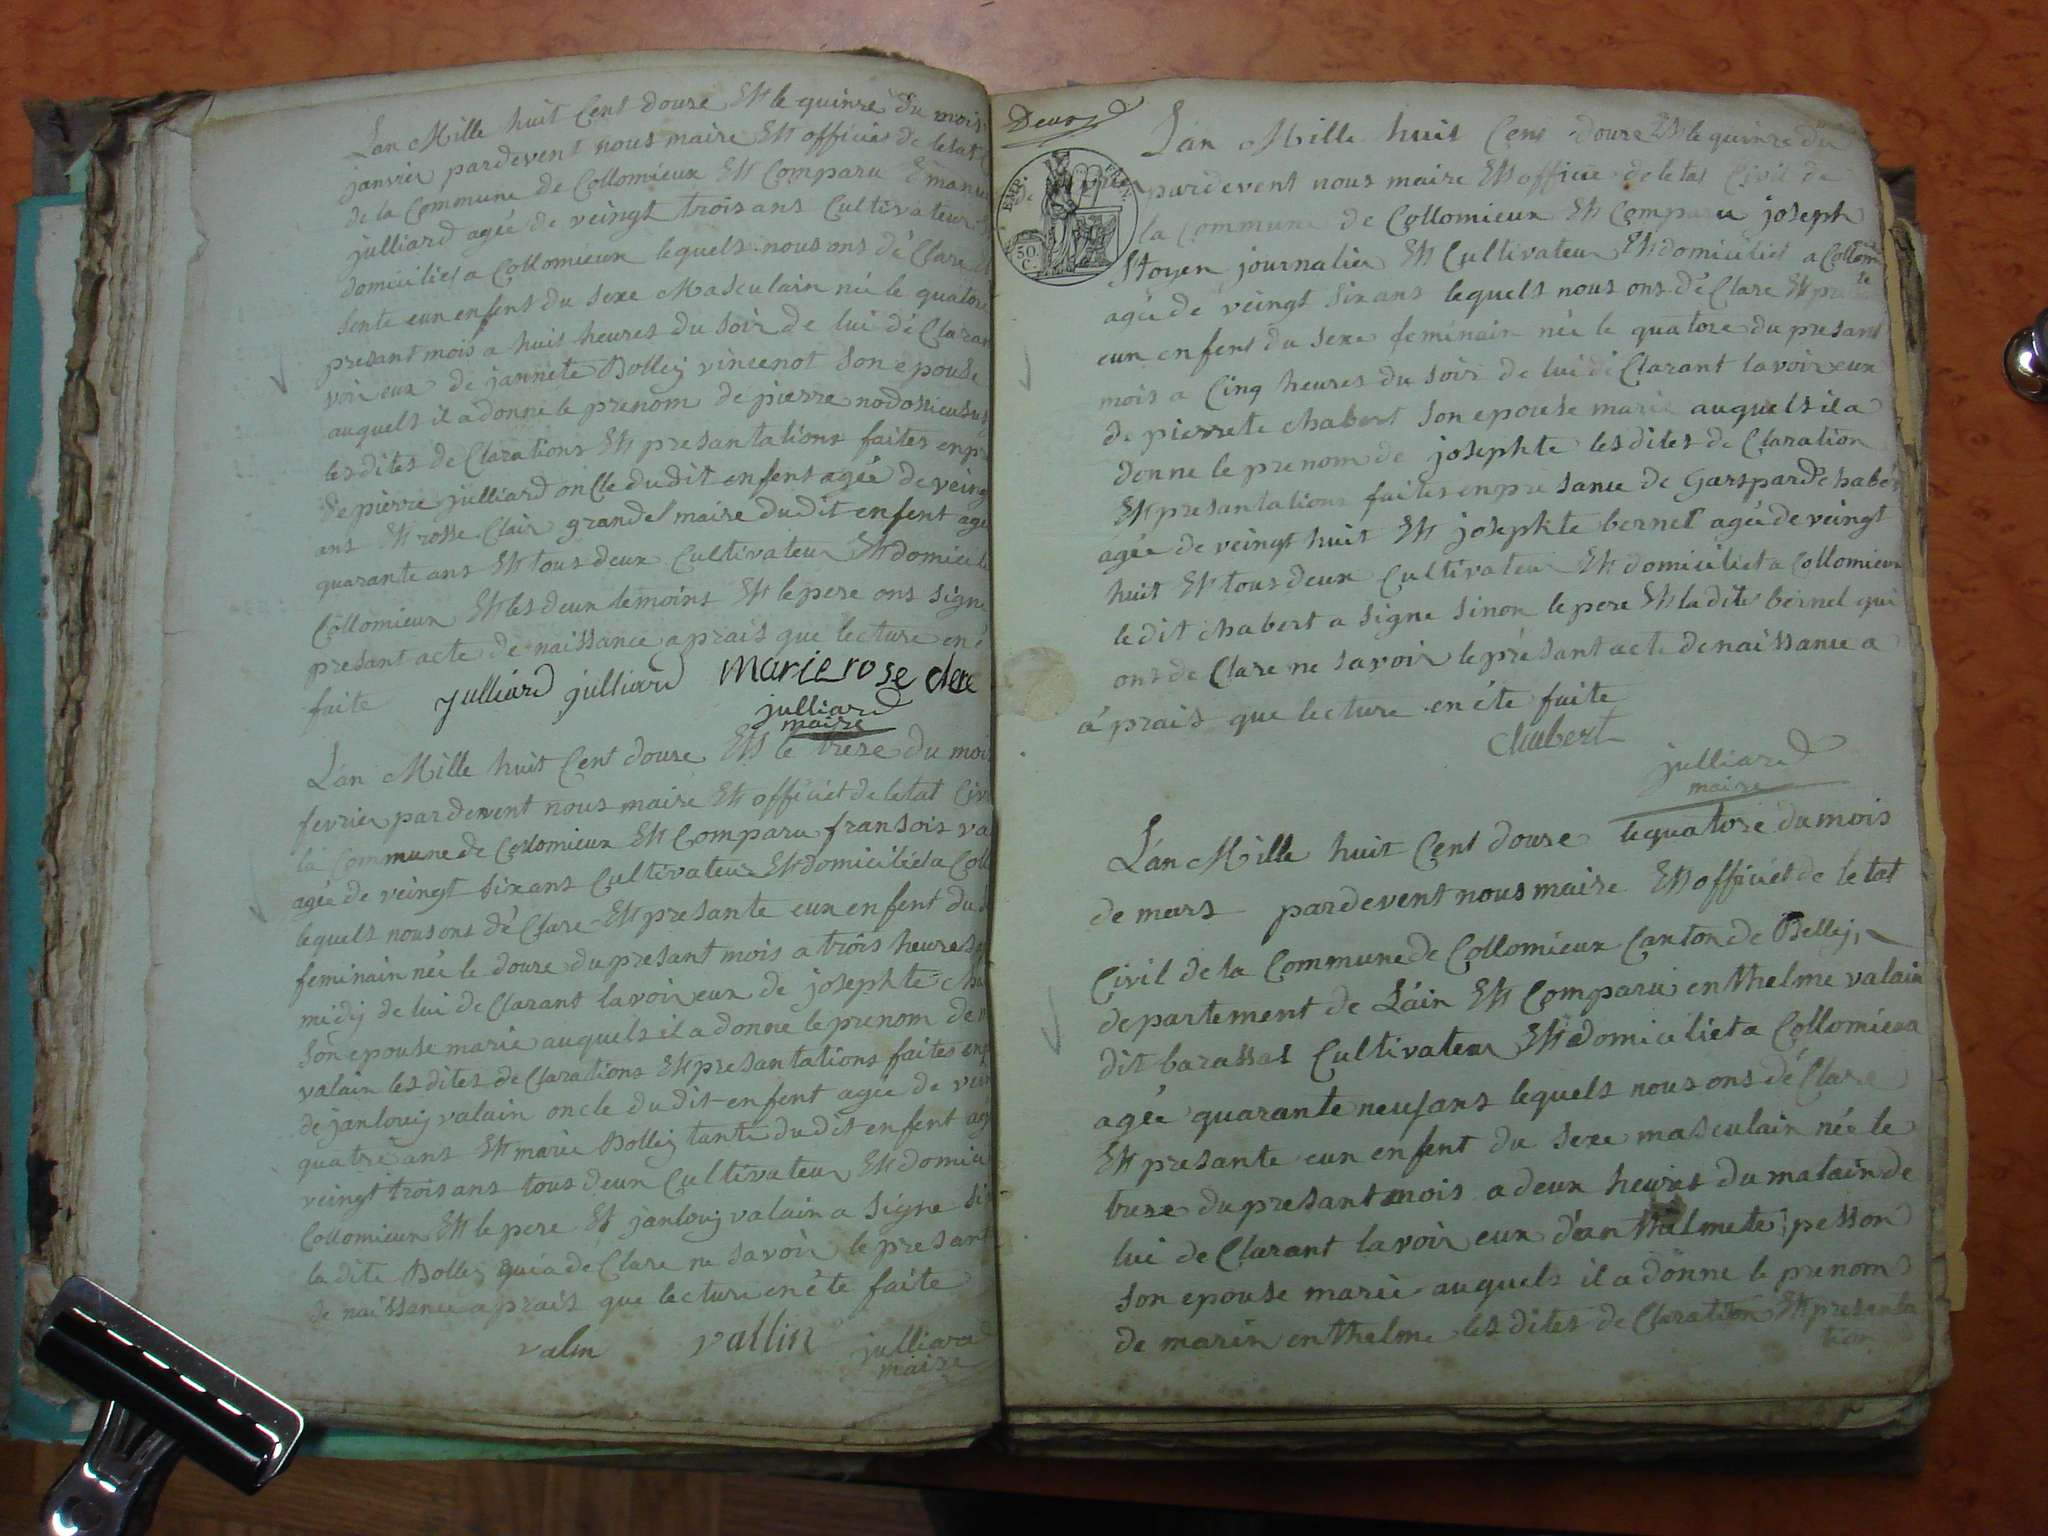 Lan Mille huit Cent douze Et le quinze du mois
janvier pardevent nous maire Et officie de letat
de la Commune de Collomieux Et Comparu Emanu
julliard agée de veingt trois ans Cultivateur
domiciliet a Collomieux lequels nous ons dé Clare Et
sente eun enfent du sexe Masculain née le quatorze
presant mois a huit heures du soir de lui dé Claran
voir eux de jannete Bolley vincenot son epouse
auquels il a donne le prenom de pierre
lesdites de Clarations Et presantations faites en pr
de pierre julliard oncle dudit enfent agée de veing
ans Et rosse Clair grande maire dudit enfent age
quarante ans Et tous deux Cultivateur Et domicili
Collomieux Et les deux temoins Et le pere ons signe
presant acte de naissance aprais que lecture en é
faite julliard julliard marie rose clere
julliard
maire
Lan Mille huit Cent douze Et le treze du mois
fevrier pardevent nous maire Et officiet de letat Civ
la Commune de Collomieux Et Comparu fransois va
agée de veingt six ans Cultivateur Et domiciliet a Coll
lequels nous ons dé Clare Et presante eun enfent du s
feminain née le douze du presant mois a trois heures
midy de lui de Clarant lavoir eux de josephte cha
son epouse marie auquels il a donne le prenom de
valain les dites de Clarations Et presantations faites enp
de janlouy valain oncle dudit enfent agée de vein
quatre ans Et marie Bolley tante dudit enfent age
veingt trois ans tous deux Cultivateur Et domici
Collomieux Et le pere Et janlouy valain a signe si
la dite Bolley qui a dé Clare ne savoir le presant
de naissance aprais que lecture en éte faite
valin vallin julliard
maire
Deux
EMP. FRAN.
50 C.
Lan Mille huit Cens douze Et le quinze du
pardevent nous maire Et officie de letat Civil de
la Commune de Collomieux Et Comparu joseph
Stoyen journalier Et Cultivateur Et domiciliet a Collom
agée de veingt six ans lequels nous ons dé Clare Et pr
eun enfent du sexe feminain née le quatorze du presant
mois a Cinq heures du soir de lui dé Clarant lavoir eux
de pierrete chabert son epouse marie auquels il a
donne le prenom de josephte lesdites de Claration
Et presantations faites en presance de Gaspard chaber
agée de veingt huit Et josephte bernet agée de veingt
huit Et tous deux Cultivateur Et domiciliet a Collomieux
le dit chabert a signe sinon le pere Et la dite bernet qui
ons de Clare ne savoir le présant acte de naissance a
áprais que lecture en éte faite
chabert
julliard
maire
Lan Mille huit Cent douze le quatorze du mois
de mars pardevent nous maire Et officiet de letat
Civil de la Commune de Collomieux Canton de Belley
departement de Lain Et Comparu enthelme valain
dit barassat Cultivateur Et domiciliet a Collomieux
agée quarante neuf ans lequels nous ons dé Clare
Et presante eun enfent du sexe masculain née le
treze du presant mois a deux heures du matain de
lui de Clarant lavoir eux déan thelmete pesson
son epouse marie auquels il a donne le prenom
de marin enthelme les dites de Claration Et presanta
tion